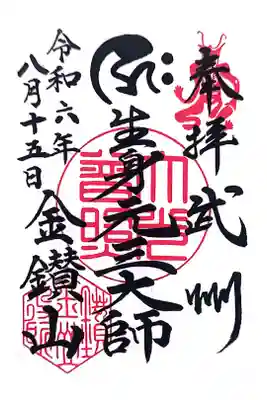 奉拝 武州
生身元三大師
金鑚山
令和六年
八月十五日